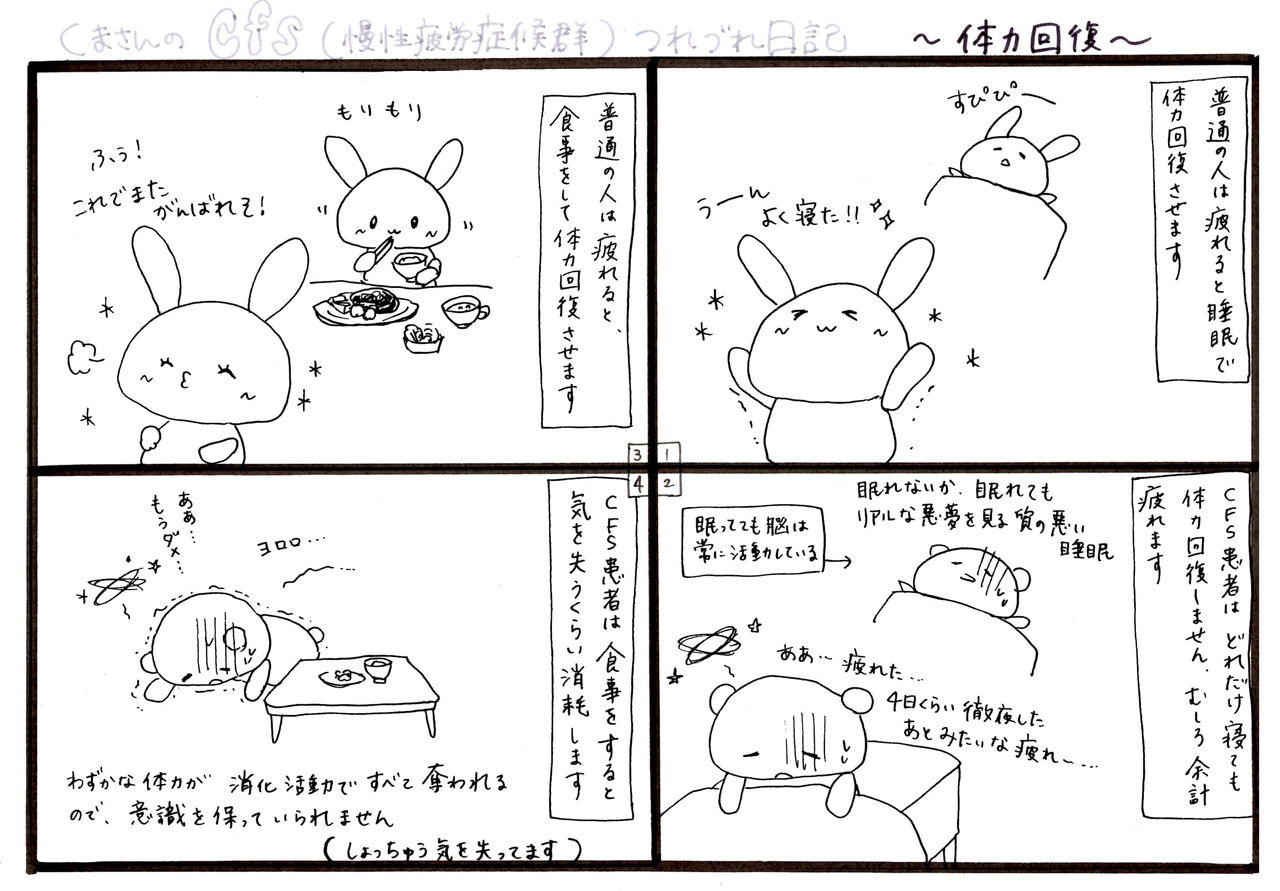 くまさんの cfs (慢性疲労症候群) つれづれ日記 ～体力回復～
1
普通の人は疲れると睡眠で
体力回復させます
すぴぴー
うーん
よく寝た!!
2
CFS患者は どれだけ寝ても
体力回復しません。むしろ余計
疲れます
眠れないか、眠れても
リアルな悪夢を見る質の悪い
睡眠
眠ってても脳は
常に活動している
ああ… 疲れた…
4日くらい徹夜した
あとみたいな疲れ～…
3
普通の人は疲れると、
食事をして体力回復させます
もりもり
ふぅ!
これでまた
がんばれそ!
4
CFS患者は食事をすると
気を失うくらい消耗します
ヨロロ…
ああ…
もうダメ…
わずかな体力が 消化活動ですべて奪われる
ので、意識を保っていられません
(しょっちゅう気を失ってます)